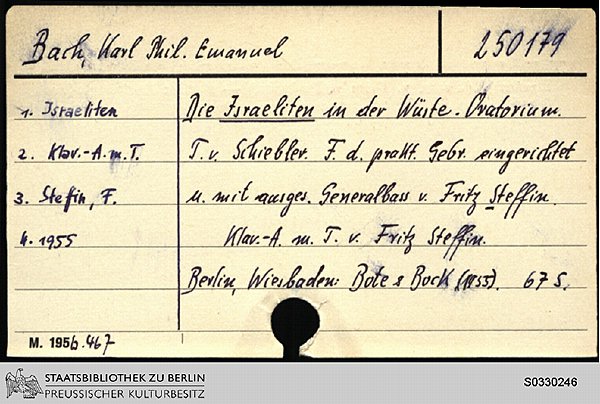 Bach, Karl Phil. Emanuel
250179
1. Israeliten
2. Klav.-A.m.T.
3. Steffin, F.
4. 1955
Die Israeliten in der Wüste. Oratorium.
T. v. Schiebler. F. d. prakt. Gebr. eingerichtet
u. mit ausges. Generalbass v. Fritz Steffin.
Klav.-A. m. T. v. Fritz Steffin.
Berlin, Wiesbaden: Bote & Bock (1955). 67 S.
M. 1956.467
STAATSBIBLIOTHEK ZU BERLIN
PREUSSISCHER KULTURBESITZ
S0330246